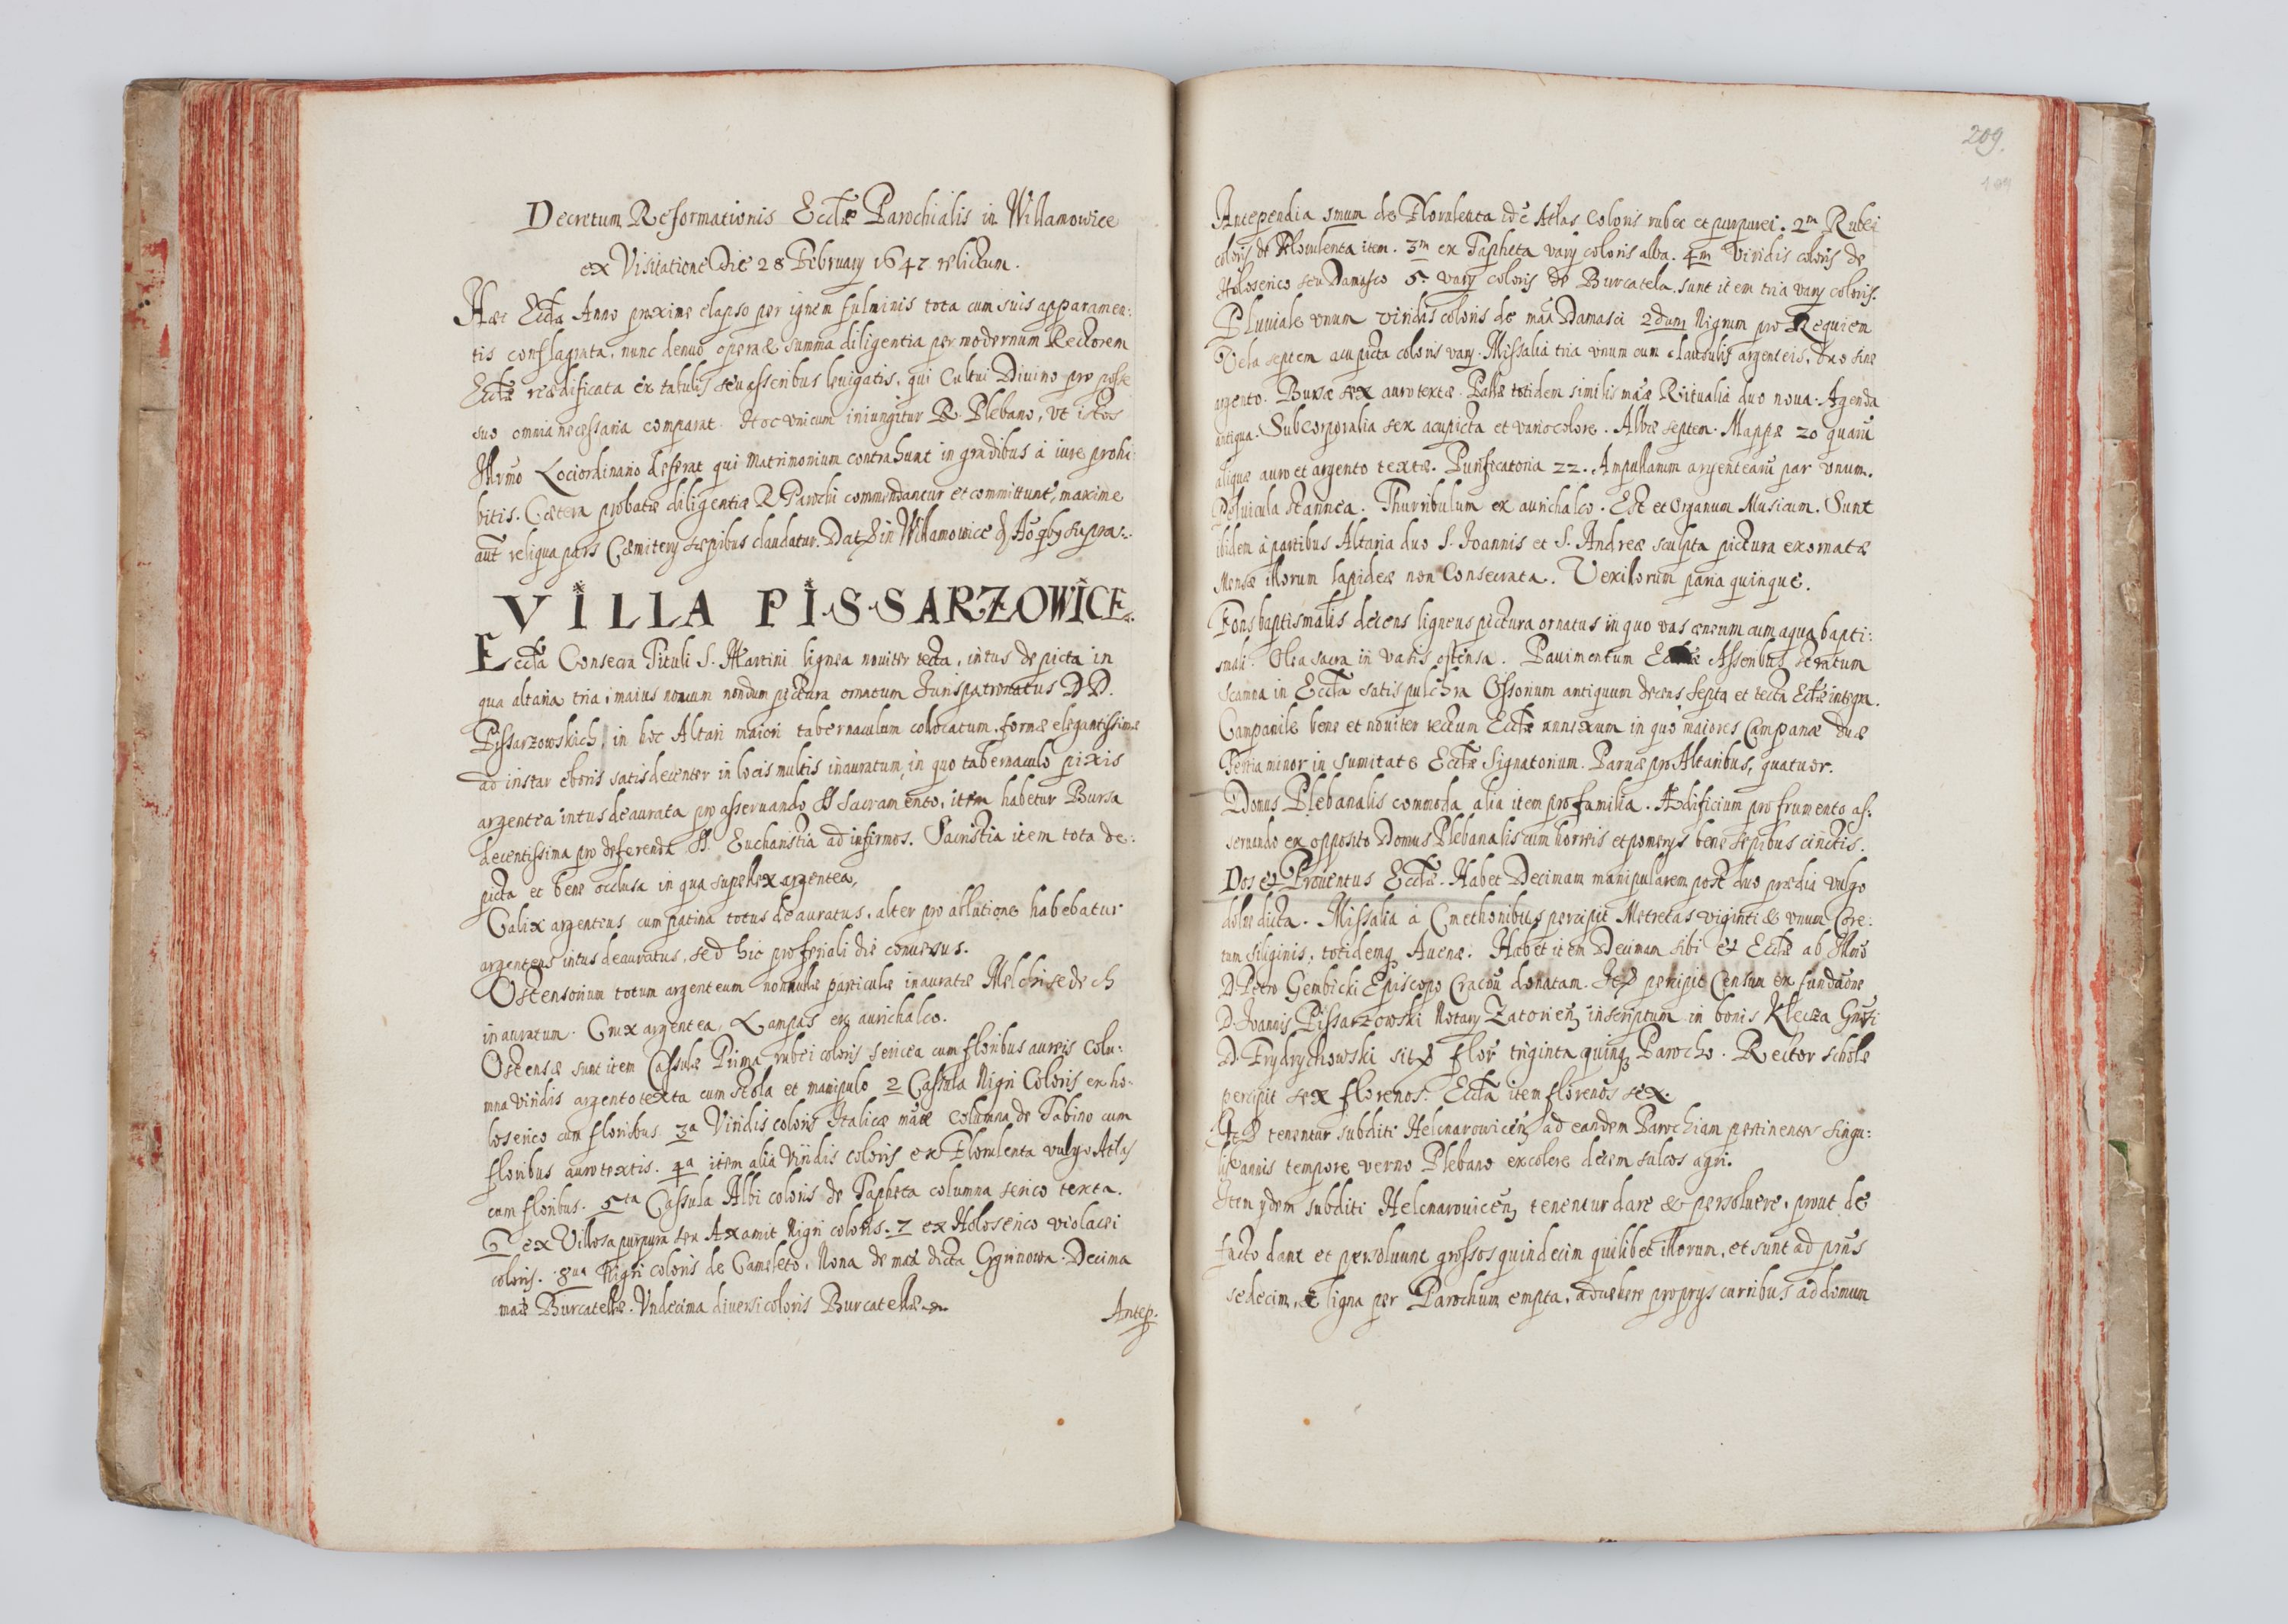 Decretum Reformationis Eccłæ Parochialis in Willamowice
ex Visitatione Die 28 February 1647 relictum.
Hæc Eccła Anno proxime elapso per ignem fulminis tota cum suis apparamen:
tis conflagrata, nunc denuo opera et summa diligentia per modernum Rectorem
Eccłæ reædificata ex tabulis seu asseribus leuigatis, qui Cultui Diuino pro posse
suo omnia necessaria comparat. Hoc vnicum iniungitur R. Plebano, vt istos
Illrmo Lociordinario deferat qui Matrimonium contrahunt in gradibus à iure prohi:
bitis. Cætera probatæ diligentiæ R Parochi commendantur et committuntr, maxime
aut reliqua pars Cæmitery sæpibus claudatur. Dat in Willamowice Ao quibus supra.
VILLA PISSARZOWICE.
Eccła Consecra Tituli S. Martini lignea nouiter tecta, intus depicta in
qua altaria tria, maius nouum nondum pictura ornatum Jurispatronatus DD.
Pissarzowskich, in hoc Altari maiori tabernaculum colocatum formæ elegantissimæ
ad instar eboris satis decenter in locis multis inauratum, in quo tabernaculo pixis
argentea intus deaurata pro asseruando SS Sacramento, item habetur Bursa
decentissima pro deferenda SS. Eucharistia ad infirmos. Sacristia item tota de:
picta et bene occlusa in qua supellex argentea,
Calix argenteus cum patina totus deauratus, alter pro ablutione habebatur
argenteus intus deauratus, sed hic pro feriali die conuersus.
Ostensorium totum argenteum nonnullæ particulæ inauratæ Melchisedech
inauratum. Crux argentea, Lampas ex aurichalco.
Ostensæ sunt item Casulæ Prima rubei coloris sericea cum floribus aureis Colu:
mna viridis argentotexta cum stola et manipulo 2 Cassula Nigri Coloris ex ho:
loserico cum floribus. 3a Viridis coloris Italicæ māæ Columna de Tabino cum
floribus aurotextis. 4a item alia Viridis coloris ex Florulenta vulgo Atlas
cum floribus. 5ta Cassula Albi coloris de Tapheta columna serico texta.
6 ex Villosa purpura seu Axamit Nigri coloris. 7 ex Holoserico violacei
coloris. 8ua Nigri coloris de Cameleto, Nona de māā dicta Cygrinowa. Decima
māæ Burcatellæ. Vndecima diuersi coloris Burcatellæ.
Antep:
209.
Antependia 1mum de Florulenta id ē Atlas Coloris rubei et purpurei. 2m Rubei
coloris de Florulenta item. 3m ex Tapheta vary coloris alba. 4m Viridis coloris de
Holoserico seu Damasco 5. vary coloris de Burcatela. sunt item tria vary coloris.
Pluuiale vnum viridis coloris de māā Damasci 2dum Nigrum pro Requiem
Vela septem acupicta coloris vary. Missalia tria vnum cum clausulis argenteis, duo sine
argento. Bursæ sex aurotextæ. Pallæ totidem similis māæ Ritualia duo noua. Agenda
antiqua. Subcorporalia sex acupicta et variocolore. Albæ septem. Mappæ 20 quarū
aliquæ auro et argento textæ. Purificatoria 22. Ampullarum argentearū par vnum.
Peluicula stannea. Thurribulum ex aurichalco. Est et Organum Musicum. Sunt
ibidem à partibus Altaria duo S. Joannis et S. Andreæ sculpta pictura exornatæ
Mensæ illorum lapideæ non Consecrata. Vexillorum paria quinque.
Fons baptismalis decens ligneus pictura ornatus in quo vas æneum cum aqua bapti:
smali. Olea sacra in vasis ostensa. Pauimentum Eccłæ Asseribus stratum
Scamna in Eccła satis pulchra Ossorium antiquum decens septa et tecta Eccłæ integra.
Campanile bene et nouiter tectum Eccłæ annexum in quo maiores Campanæ duæ
Tertia minor in sumitate Eccłæ Signatorium. Paruæ pro Altaribus, quatuor.
Domus Plebanalis commoda alia item pro familia. Ædificium pro frumento as:
seruando ex opposito Domus Plebanalis cum horreis et pomerys bene sepibus cinctis.
Dos et Prouentus Eccłæ. Habet Decimam manipularem post duo prædia vulgo
dolne dicta. Missalia à Cmethonibus percipit Metretas viginti & vnum Core:
tum siliginis, totidemq Auenæ. Habet item Decimam sibi et Eccłæ ab Illmo
D. Petro Gembicki Episcopo Cracou donatam. percipit Censum ex fundaōne
D. Joannis Pissarzowski Notary Zatorien inscriptum in bonis Klecza Gnosi
D. Frydrychowski flor triginta quinq Parocho. Rector scholæ
percipit sex florenos. Eccła item florenos sex.
tenentur subditi Helcnarowicen ad eandem Parochiam pertinentes singu:
lis annis tempore verno Plebano excolere decem sulcos agri.
Item ydem subditi Helcnarouicen tenentur dare & persoluere, prout de
facto dant et persoluunt grossos quindecim quilibet illorum, et sunt ad præns
sedecim, et ligna per Parochum empta, aduehere proprys curribus ad domum